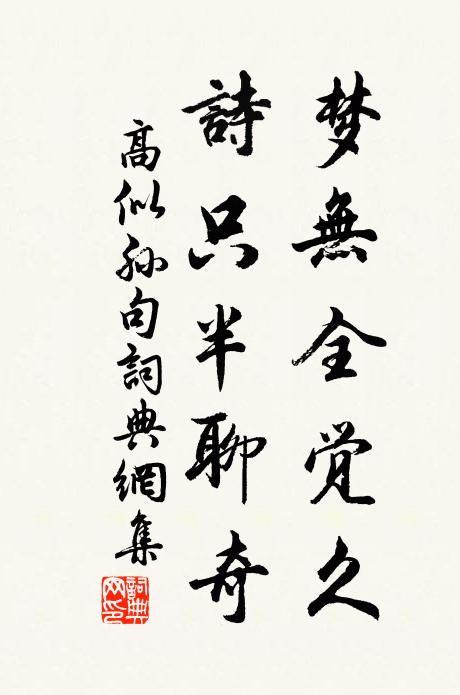 梦無全覚久
詩只半聊奇
高似孫句詞典網集
詞典网印